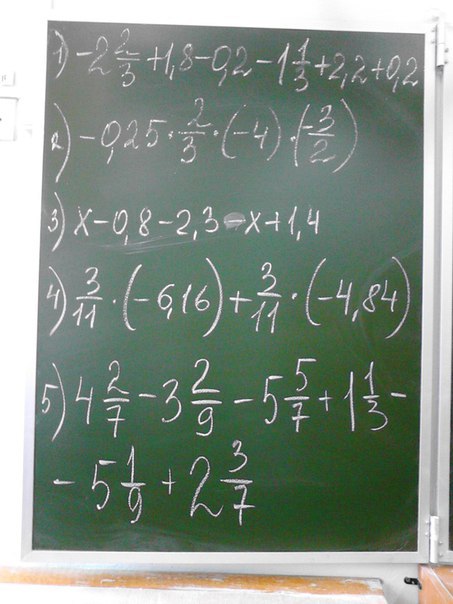 1) -2 2/3 + 1,8 - 0,2 - 1 1/3 + 2,2 + 0,2
2) -0,25 · 2/3 · (-4) · (-3/2)
3) x - 0,8 - 2,3 - x + 1,4
4) 3/11 · (-6,16) + 3/11 · (-4,84)
5) 4 2/7 - 3 2/9 - 5 5/7 + 1 1/3 -
- 5 1/9 + 2 3/7